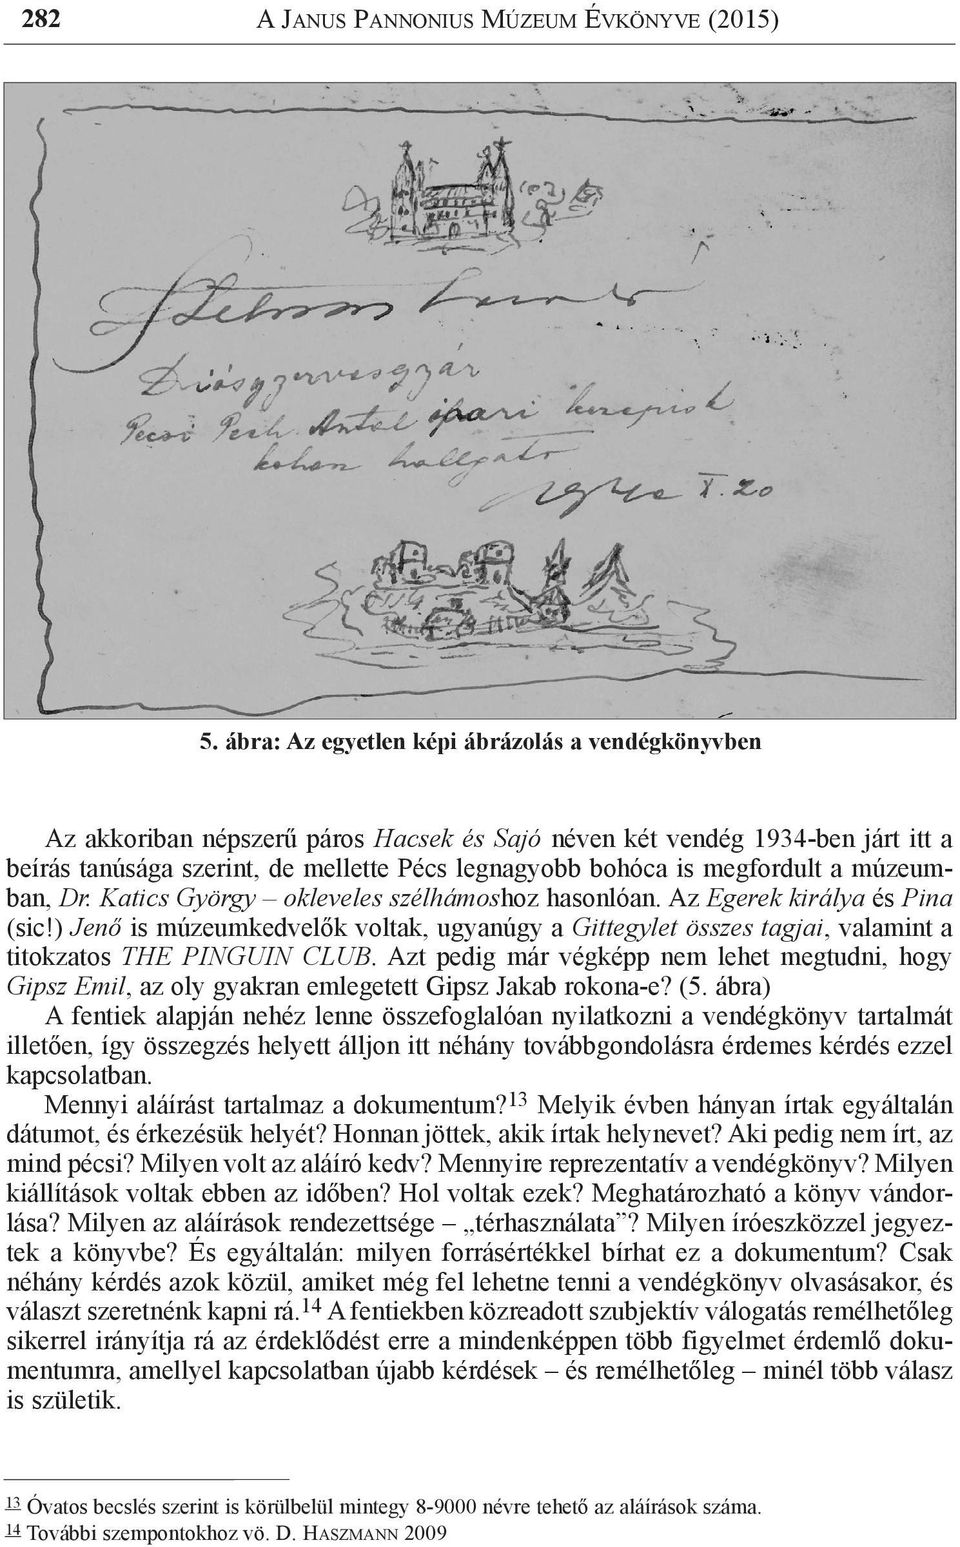 282 A JANUS PANNONIUS MÚZEUM ÉVKÖNYVE (2015)
Diósgyőrvasgyár
Pécsi Pech Antal ipari középisk
kohán hallgató
1940 X. 20
5. ábra: Az egyetlen képi ábrázolás a vendégkönyvben
Az akkoriban népszerű páros Hacsek és Sajó néven két vendég 1934-ben járt itt a
beírás tanúsága szerint, de mellette Pécs legnagyobb bohóca is megfordult a múzeum-
ban, Dr. Katics György – okleveles szélhámoshoz hasonlóan. Az Egerek királya és Pina
(sic!) Jenő is múzeumkedvelők voltak, ugyanúgy a Gittegylet összes tagjai, valamint a
titokzatos THE PINGUIN CLUB. Azt pedig már végképp nem lehet megtudni, hogy
Gipsz Emil, az oly gyakran emlegetett Gipsz Jakab rokona-e? (5. ábra)
A fentiek alapján nehéz lenne összefoglalóan nyilatkozni a vendégkönyv tartalmát
illetően, így összegzés helyett álljon itt néhány továbbgondolásra érdemes kérdés ezzel
kapcsolatban.
Mennyi aláírást tartalmaz a dokumentum?13 Melyik évben hányan írtak egyáltalán
dátumot, és érkezésük helyét? Honnan jöttek, akik írtak helynevet? Aki pedig nem írt, az
mind pécsi? Milyen volt az aláíró kedv? Mennyire reprezentatív a vendégkönyv? Milyen
kiállítások voltak ebben az időben? Hol voltak ezek? Meghatározható a könyv vándor-
lása? Milyen az aláírások rendezettsége – „térhasználata"? Milyen íróeszközzel jegyez-
tek a könyvbe? És egyáltalán: milyen forrásértékkel bírhat ez a dokumentum? Csak
néhány kérdés azok közül, amiket még fel lehetne tenni a vendégkönyv olvasásakor, és
választ szeretnénk kapni rá.14 A fentiekben közreadott szubjektív válogatás remélhetőleg
sikerrel irányítja rá az érdeklődést erre a mindenképpen több figyelmet érdemlő doku-
mentumra, amellyel kapcsolatban újabb kérdések – és remélhetőleg – minél több válasz
is születik.
13 Óvatos becslés szerint is körülbelül mintegy 8-9000 névre tehető az aláírások száma.
14 További szempontokhoz vö. D. HASZMANN 2009